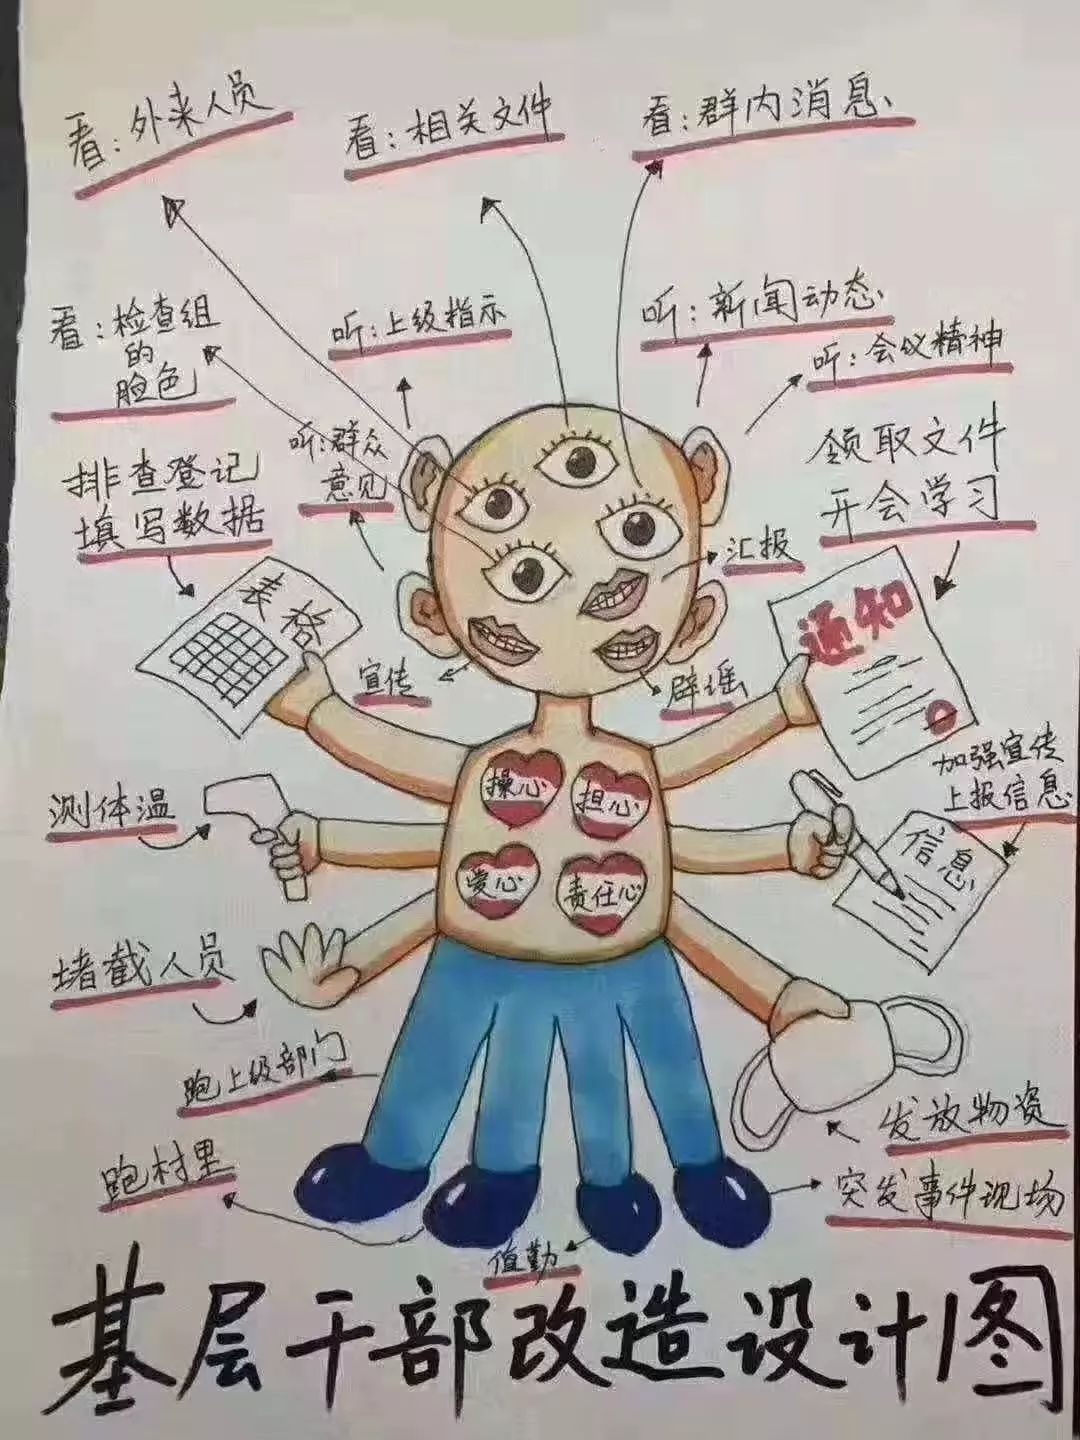 看:外来人员
看:相关文件
看:群内消息
看:检查组
的
脸色
听:上级指示
听:新闻动态
听:会议精神
听:群众
意见
排查登记
填写数据
领取文件
开会学习
汇报
宣传
辟谣
表格
通知
操心
担心
爱心
责任心
测体温
加强宣传
上报信息
信息
堵截人员
跑上级部门
发放物资
跑村里
突发事件现场
值勤
基层干部改造设计图